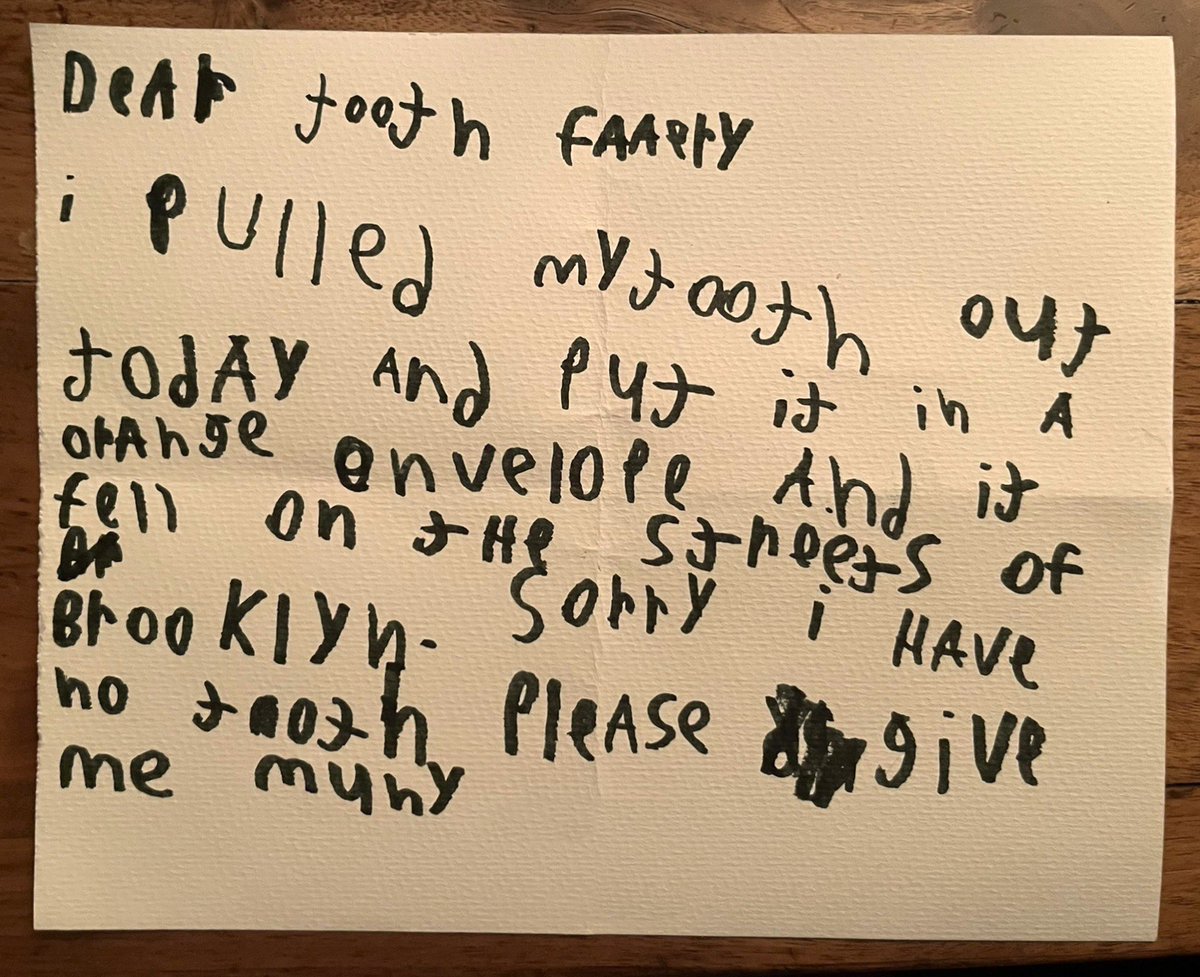 DeAr tooth fAAerry
i pulled my tooth out
todAy And put it in A
orAnge envelope And it
fell on tHe streets of
BrooKlyn. Sorry i HAve
no tooth PleASe give
me muny